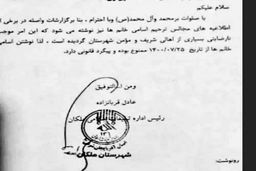 سلام علیکم
با صلوات برمحمد وآل محمد(ص) وبا احترام ، بنا برگزارشات واصله در برخی از
اطلاعیه های مجالس ترحیم اسامی خانم ها نیز نوشته می شود که این امر موجب
نارضایتی بسیاری از اهالی شریف و مؤمن شهرستان گردیده است ، لذا نوشتن اسامی
خانم ها از تاریخ ۱۴۰۰/۰۷/۲۵ ممنوع بوده و پیگرد قانونی دارد.
ومن ا... التوفیق
عادل قربانزاده
رئیس اداره ملکان
شهرستان ملکان
رونوشت: